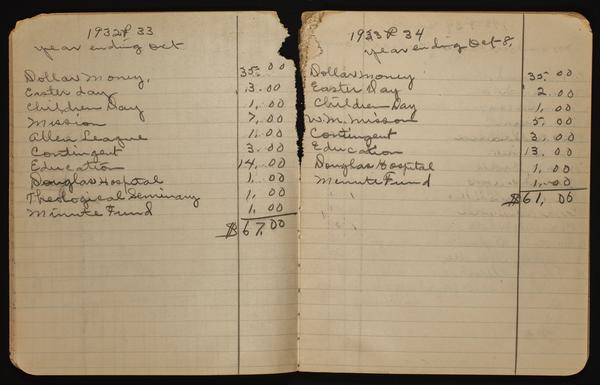 1932 & 33
year ending Oct
Dollar Money, 35.00
Easter Day 3.00
Children Day 1.00
Mission 7.00
Allen League 1.00
Contingent 3.00
Education 14.00
Douglas Hospital 1.00
Theological Seminary 1.00
Minute Fund 1.00
$67.00
1933 & 34
year ending Oct 8,
Dollar Money 35.00
Easter Day 2.00
Children Day 1.00
W.M. Mission 5.00
Contingent 3.00
Education 13.00
Douglas Hospital 1.00
Minute Fund 1.00
$61.00